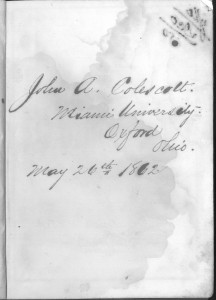 John A. Colescott.
Miami University.
Oxford
Ohio.
May 26th 1862